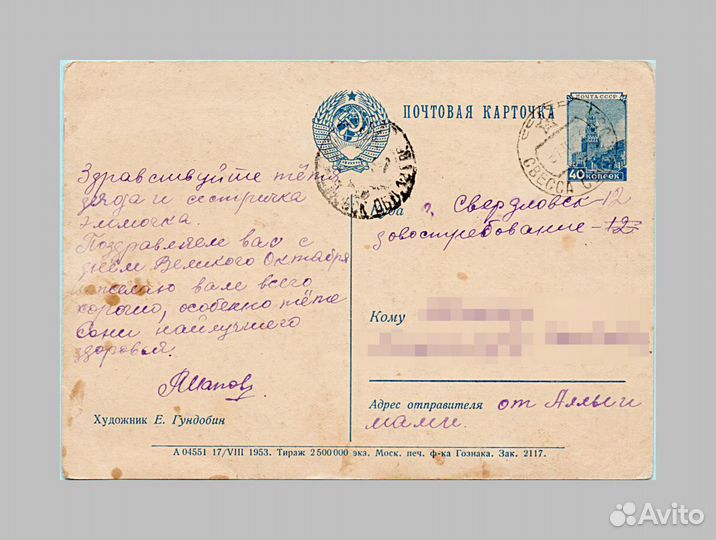 ПОЧТОВАЯ КАРТОЧКА
ПОЧТА СССР
40 КОПЕЕК
Здравствуйте тётя
дядя и сестричка
Эммочка.
Поздравляем вас с
днём Великого Октября
и желаю вам всего
хорошо, особенно тёте
Сони найлучшего
здоровья.
Художник Е. Гундобин
г. Свердловск-12
довостребование-12
Кому
Адрес отправителя от Аллы и
мамы.
А 04551 17/VIII 1953. Тираж 2 500 000 экз. Моск. печ. ф-ка Гознака. Зак. 2117.
Avito